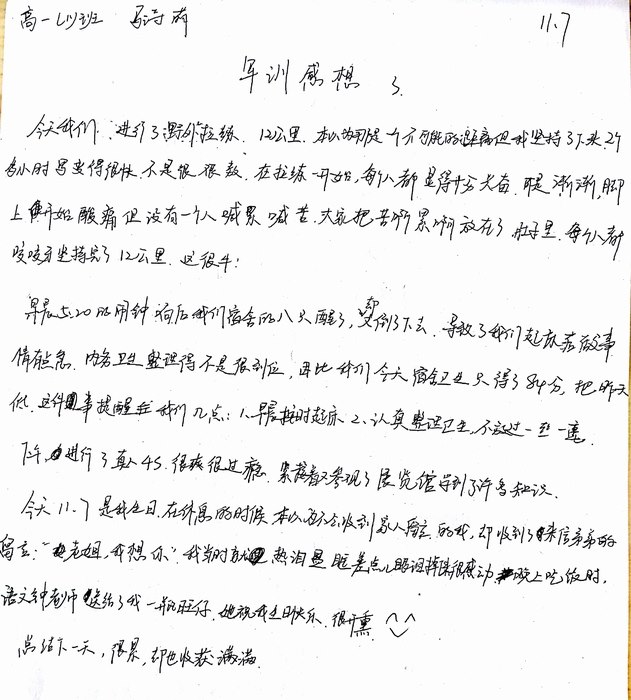 高一 班 马诗 11.7
军训感想 3.
今天我们进行了野外拉练. 12公里. 本以为那是一个不可能的距离但我坚持了下来. 2个
多小时 变得很快. 不是很 在拉练一开始,每个人都显得十分兴奋. 可是渐渐,脚
上 开始酸痛但没有一个人喊累喊苦. 大家把苦啊累啊放在了肚子里. 每个人都
咬咬牙坚持完了12公里. 这很牛!
早晨5:20的闹钟 后我们宿舍的八只醒了,却又倒了下去. 导致了我们起床后做事
情有点急. 内务卫生整理得不是很到位, 因此我们今天宿舍卫生只得了84分, 比昨天
低. 这件事提醒 我们几点: 1.早晨按时起床 2.认真整理卫生,不放过一丝一毫.
下午, 进行了真人CS. 很爽很过瘾. 紧接着又参观了展览馆 学到了许多知识.
今天11.7是我生日. 在休息的时候 本以为不会收到家人留言的我, 却收到了来信 弟弟的
留言: “老姐, 我想你”. 我当时 热泪 眶差点儿眼泪掉 很感动. 晚上吃饭时,
语文钟老师送给了我一瓶旺仔. 她祝我生日快乐. 很开熏
总结下一天, 很累, 却也收获满满.